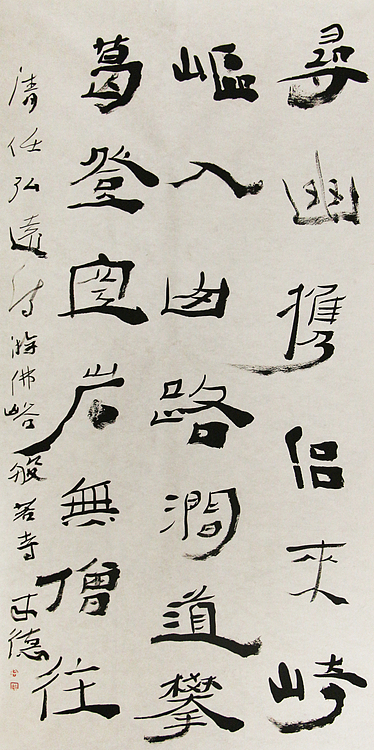 尋幽攜侶來崎
嶇入曲路澗道攀
葛登空岩無僧往
清任弘遠詩游佛峪般若寺 德